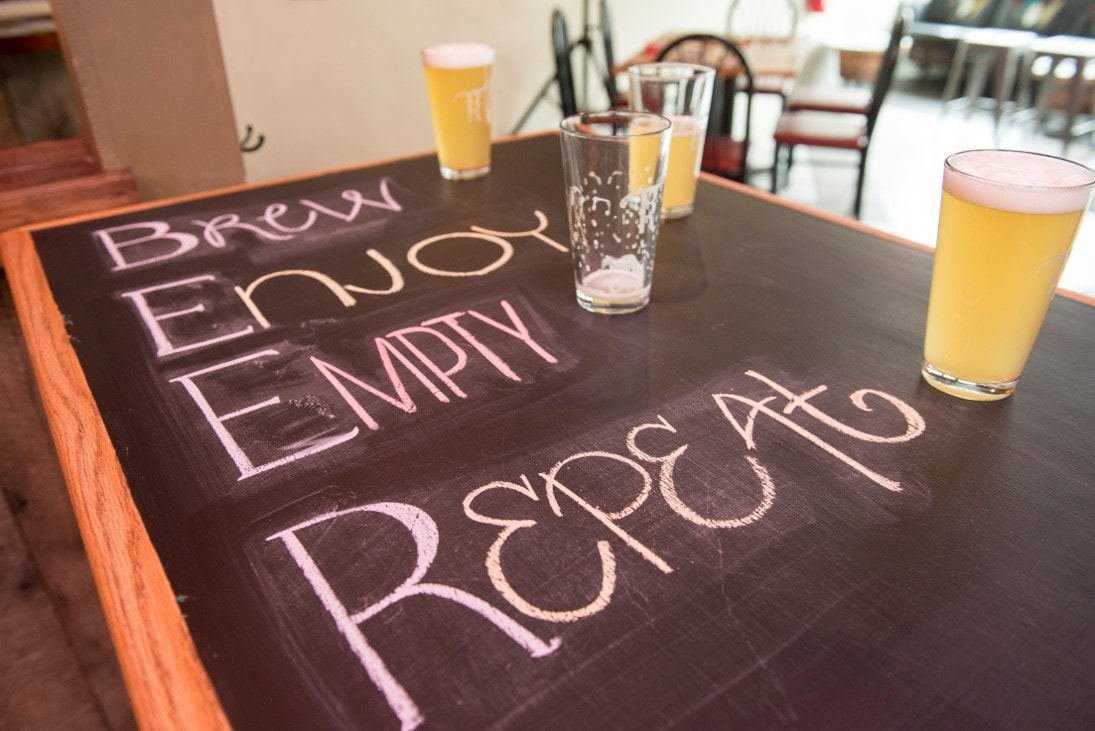 Brew
Enjoy
Empty
Repeat